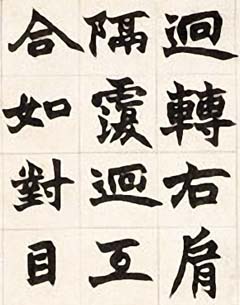 迴轉右肩
隔覆迴互
合如對目